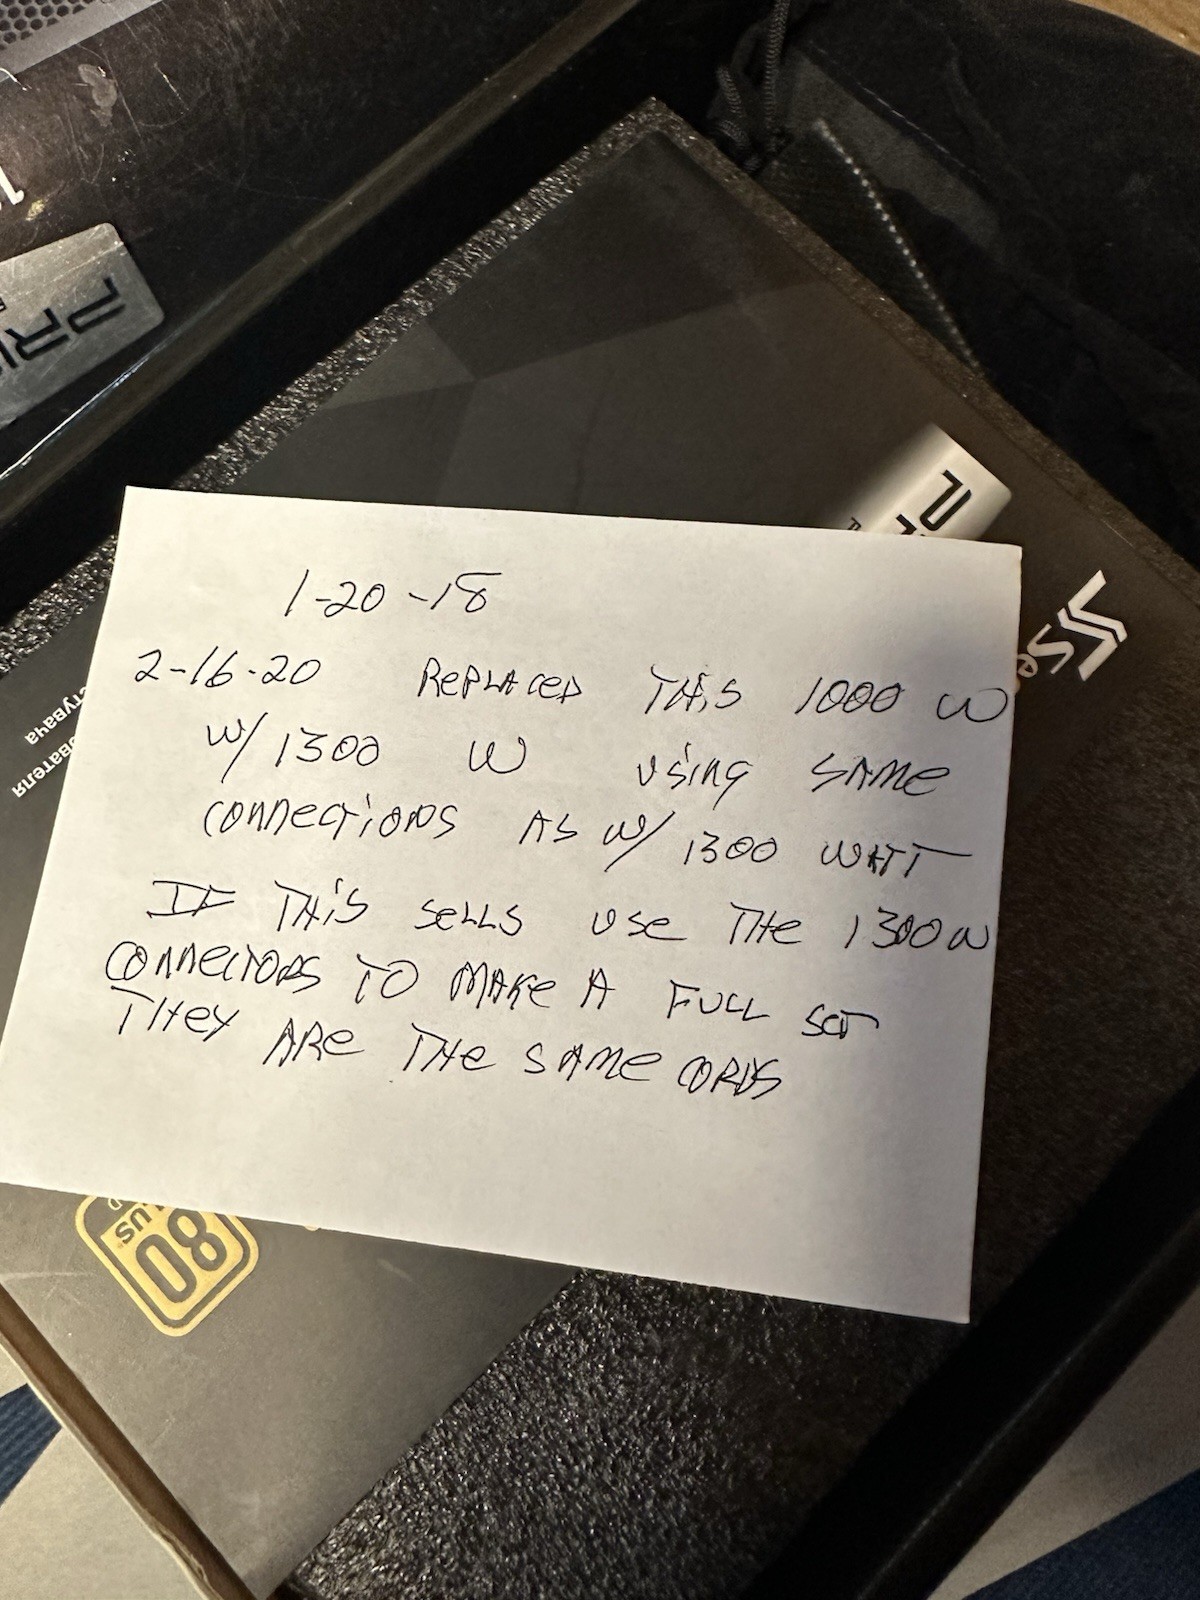 1-20-18
2-16-20 REPLACED THIS 1000 W
W/ 1300 W USING SAME
CONNECTIONS AS W/ 1300 WATT
IF THIS SELLS USE THE 1300W
CONNECTORS TO MAKE A FULL SET
THEY ARE THE SAME CORDS
PRI
Se
80
LUS
тувача
ователя